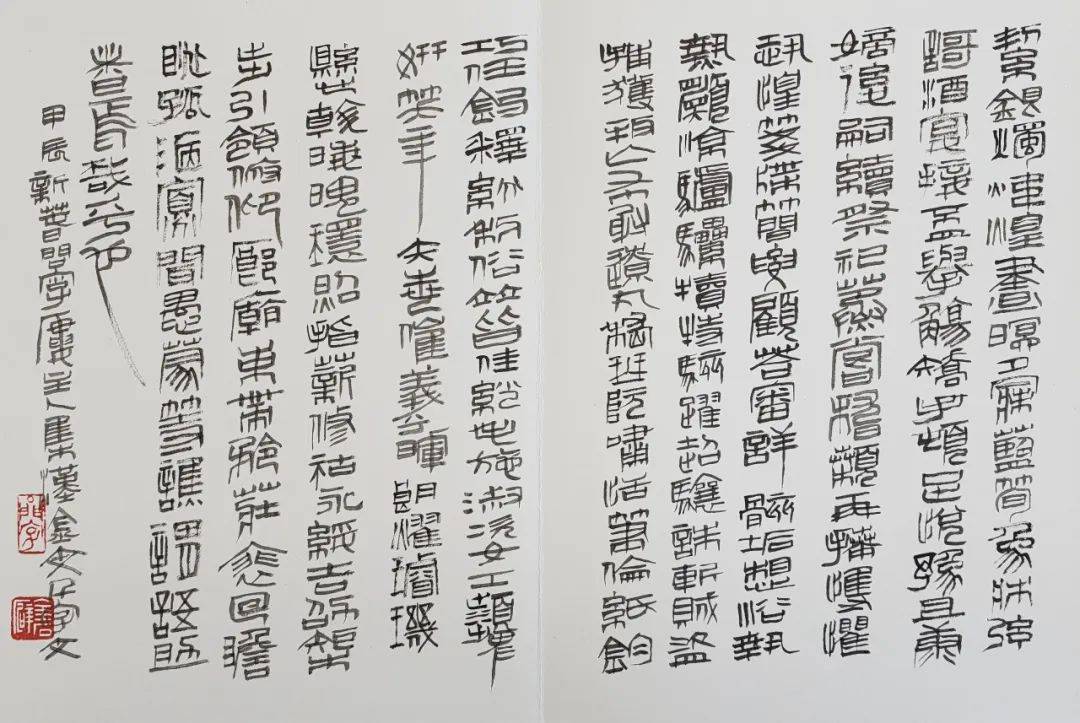 絜銀燭煒煌晝瞑夕寐藍筍象床弦
謌酒宴接杯舉觴矯手頓足悅豫且康
嫡後嗣續祭祀蒸嘗稽顙再拜悚懼
恐惶箋牒簡要顧答審詳骸垢想浴執
熱願涼驢騾犢特駭躍超驤誅斬賊盜
捕獲叛亡布射遼丸嵇琴阮嘯恬筆倫紙鈞
巧任釣釋紛利俗並皆佳妙毛施淑姿工顰
妍笑年矢每催羲暉朗耀璿璣
懸斡晦魄環照指薪修祜永綏吉劭矩
步引領俯仰廊廟束帶矜莊徘徊瞻
眺孤陋寡聞愚蒙等誚謂語助
者焉哉乎也
甲辰新春問字廔主人集漢金文千字文